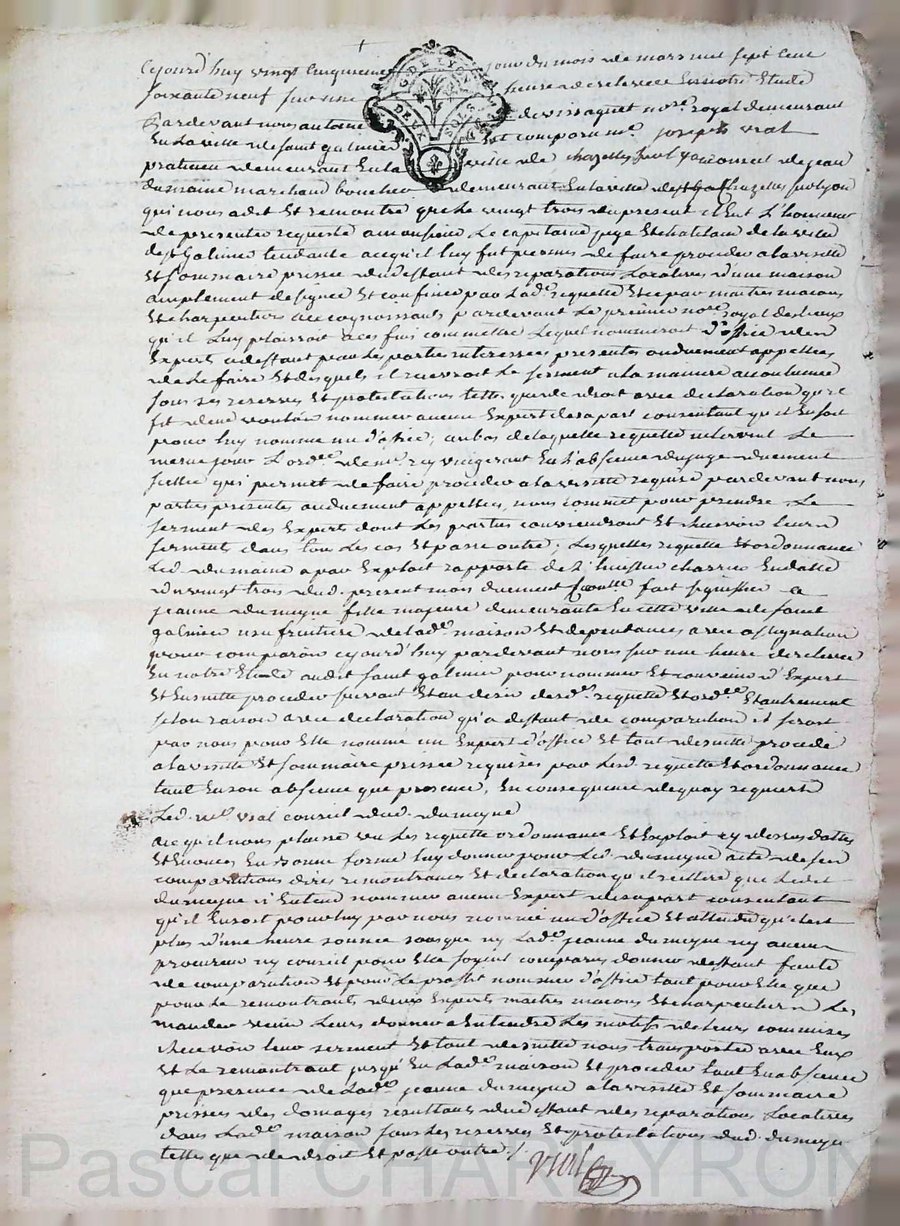 Cejourd'huy vingt cinquieme jour du mois de mars mil sept cent
soixante neuf sur une heure de relevée en notre Etude
G. DE LYON
DEUX SOLS
Pardevant nous antoine devissaguet no.re royal demeurant
En la ville de saint galmier Est comparu m.e joseph vial
praticien demeurant En la ville de chazelles de jean
dumaine marchand boucher demeurant En la ville de Chazelles sur lyon
qui nous a dit Et remontré que le vingt trois du present il Eut l'honneur
de presenter requette a monsieur Le capitaine juge Et chatelain de la ville
de s.t Galmier tendante a ce qu'il luy fut permis de faire proceder a la visitte
Et sommaire prisee du deffaut des reparations Locatives d'une maison
amplement designée Et confinée par lad.e requette Et ce par maitres macons
Et charpentiers a ce cognoissants pardevant Le premier no.re royal des lieux
qu'il luy plairroit a ces fins commettre Lequel nommeroit d'office un
Expert a deffaut par les parties interessées presentes ou duement appellées
de Le faire Et desquels il recevroit Le serment a la maniere accoutumée
sous ses reserves Et protestations telles que de droit avec declaration qu'il
fit de ne vouloir nommer aucun Expert de sa part consentant qu'il En soit
pour luy nommé un d'office; au bas de laquelle requette intervint Le
meme jour L'ord.ce de m.e Exigeant En l'absence du juge duement
scellée qui permet de faire proceder a la visitte requise pardevant nous
parties presentes ou duement appellées, nous commet pour prendre Le
serment des Experts dont Les parties conviendront Et recevoir leur
serments dans tous Les cas Et passe outre; Lesquelles requette Et ordonnance
Led. dumaine a par Exploit rapporté de l'huissier charrier En datte
du vingt trois du d. present mois duement fait signiffier a
jeanne dumeyne fille majeure demeurante En cette ville de saint
galmier usufruitiere de lad.e maison Et dependances avec assignation
pour comparoir cejourd'huy pardevant nous sur une heure de relevée
En notre Etude audit saint galmier pour nommer Et convenir d'Expert
Et Ensuitte proceder suivant Et au desir desd. requette Et ord.ce Et autrement
selon raison avec declaration qu'a deffaut de comparution il seroit
par nous pour Elle nommé un Expert d'office Et tout de suitte procedé
a la visitte Et sommaire prisée requises par Lesd. requette Et ordonnance
tant En son absence que presence, En consequence de quoy requiert
Led. m.e vial conseil dud. dumeyne
a ce qu'il nous plaise vu Les requette ordonnance Et Exploit cy dessus dattés
Et Enoncés En bonne forme luy donner pour Led. dumeyne acte de ses
comparutions dires remontrances Et declaration qu'il reïtere que Ledit
dumeyne n'Entend nommer aucun Expert de sa part consentant
qu'il En soit pour luy par nous nommé un d'office Et attendu qu'il est
plus d'une heure sonnée sans que ny Lad.e jeanne dumeyne ny aucun
procureur ny conseil pour Elle soyent comparus donner deffaut faute
de comparution Et pour Le proffit nommer d'office tant pour Elle que
pour Le remontrant deux Experts maitres macons Et charpentier Les
mander venir Leurs donner a Entendre Les motifs de leurs commises
recevoir leur serment Et tout de suitte nous transporter avec Eux
Et Le remontrant jusqu'En Lad.e maison Et proceder tant En absence
que presence de Lad.e jeanne dumeyne a la visitte Et sommaire
prisées des domages resultans du deffaut des reparations Locatives
dans Lad.e maison sous Les reserves Et protestations dud. dumeyne
telles que de droit Et passe outre./.
vial
Pascal CHARLEYRON